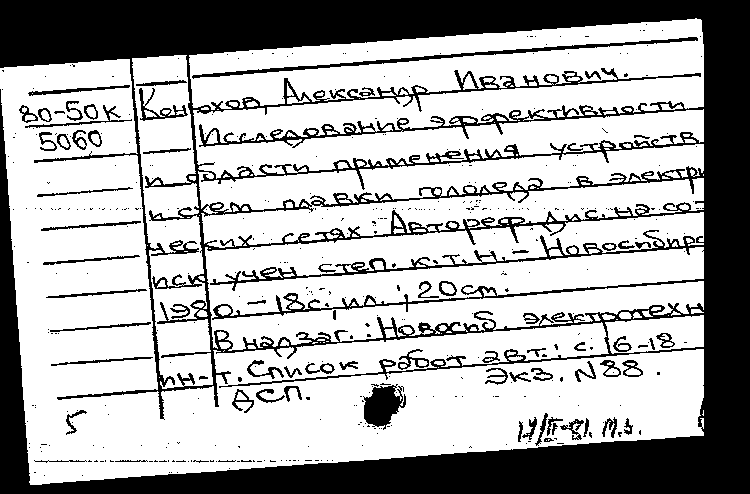 80-50к Конюхов, Александр Иванович.
5060 Исследование эффективности
и области применения устройств
и схем плавки гололеда в электри
ческих сетях: Автореф. дис. на со-
иск. учен. степ. к.т.н. - Новосибирс
1980. - 18с., ил.; 20см.
В надзаг.: Новосиб. электротехн
ин-т. Список работ авт.: с. 16-18
ДСП. Экз. N88.
5